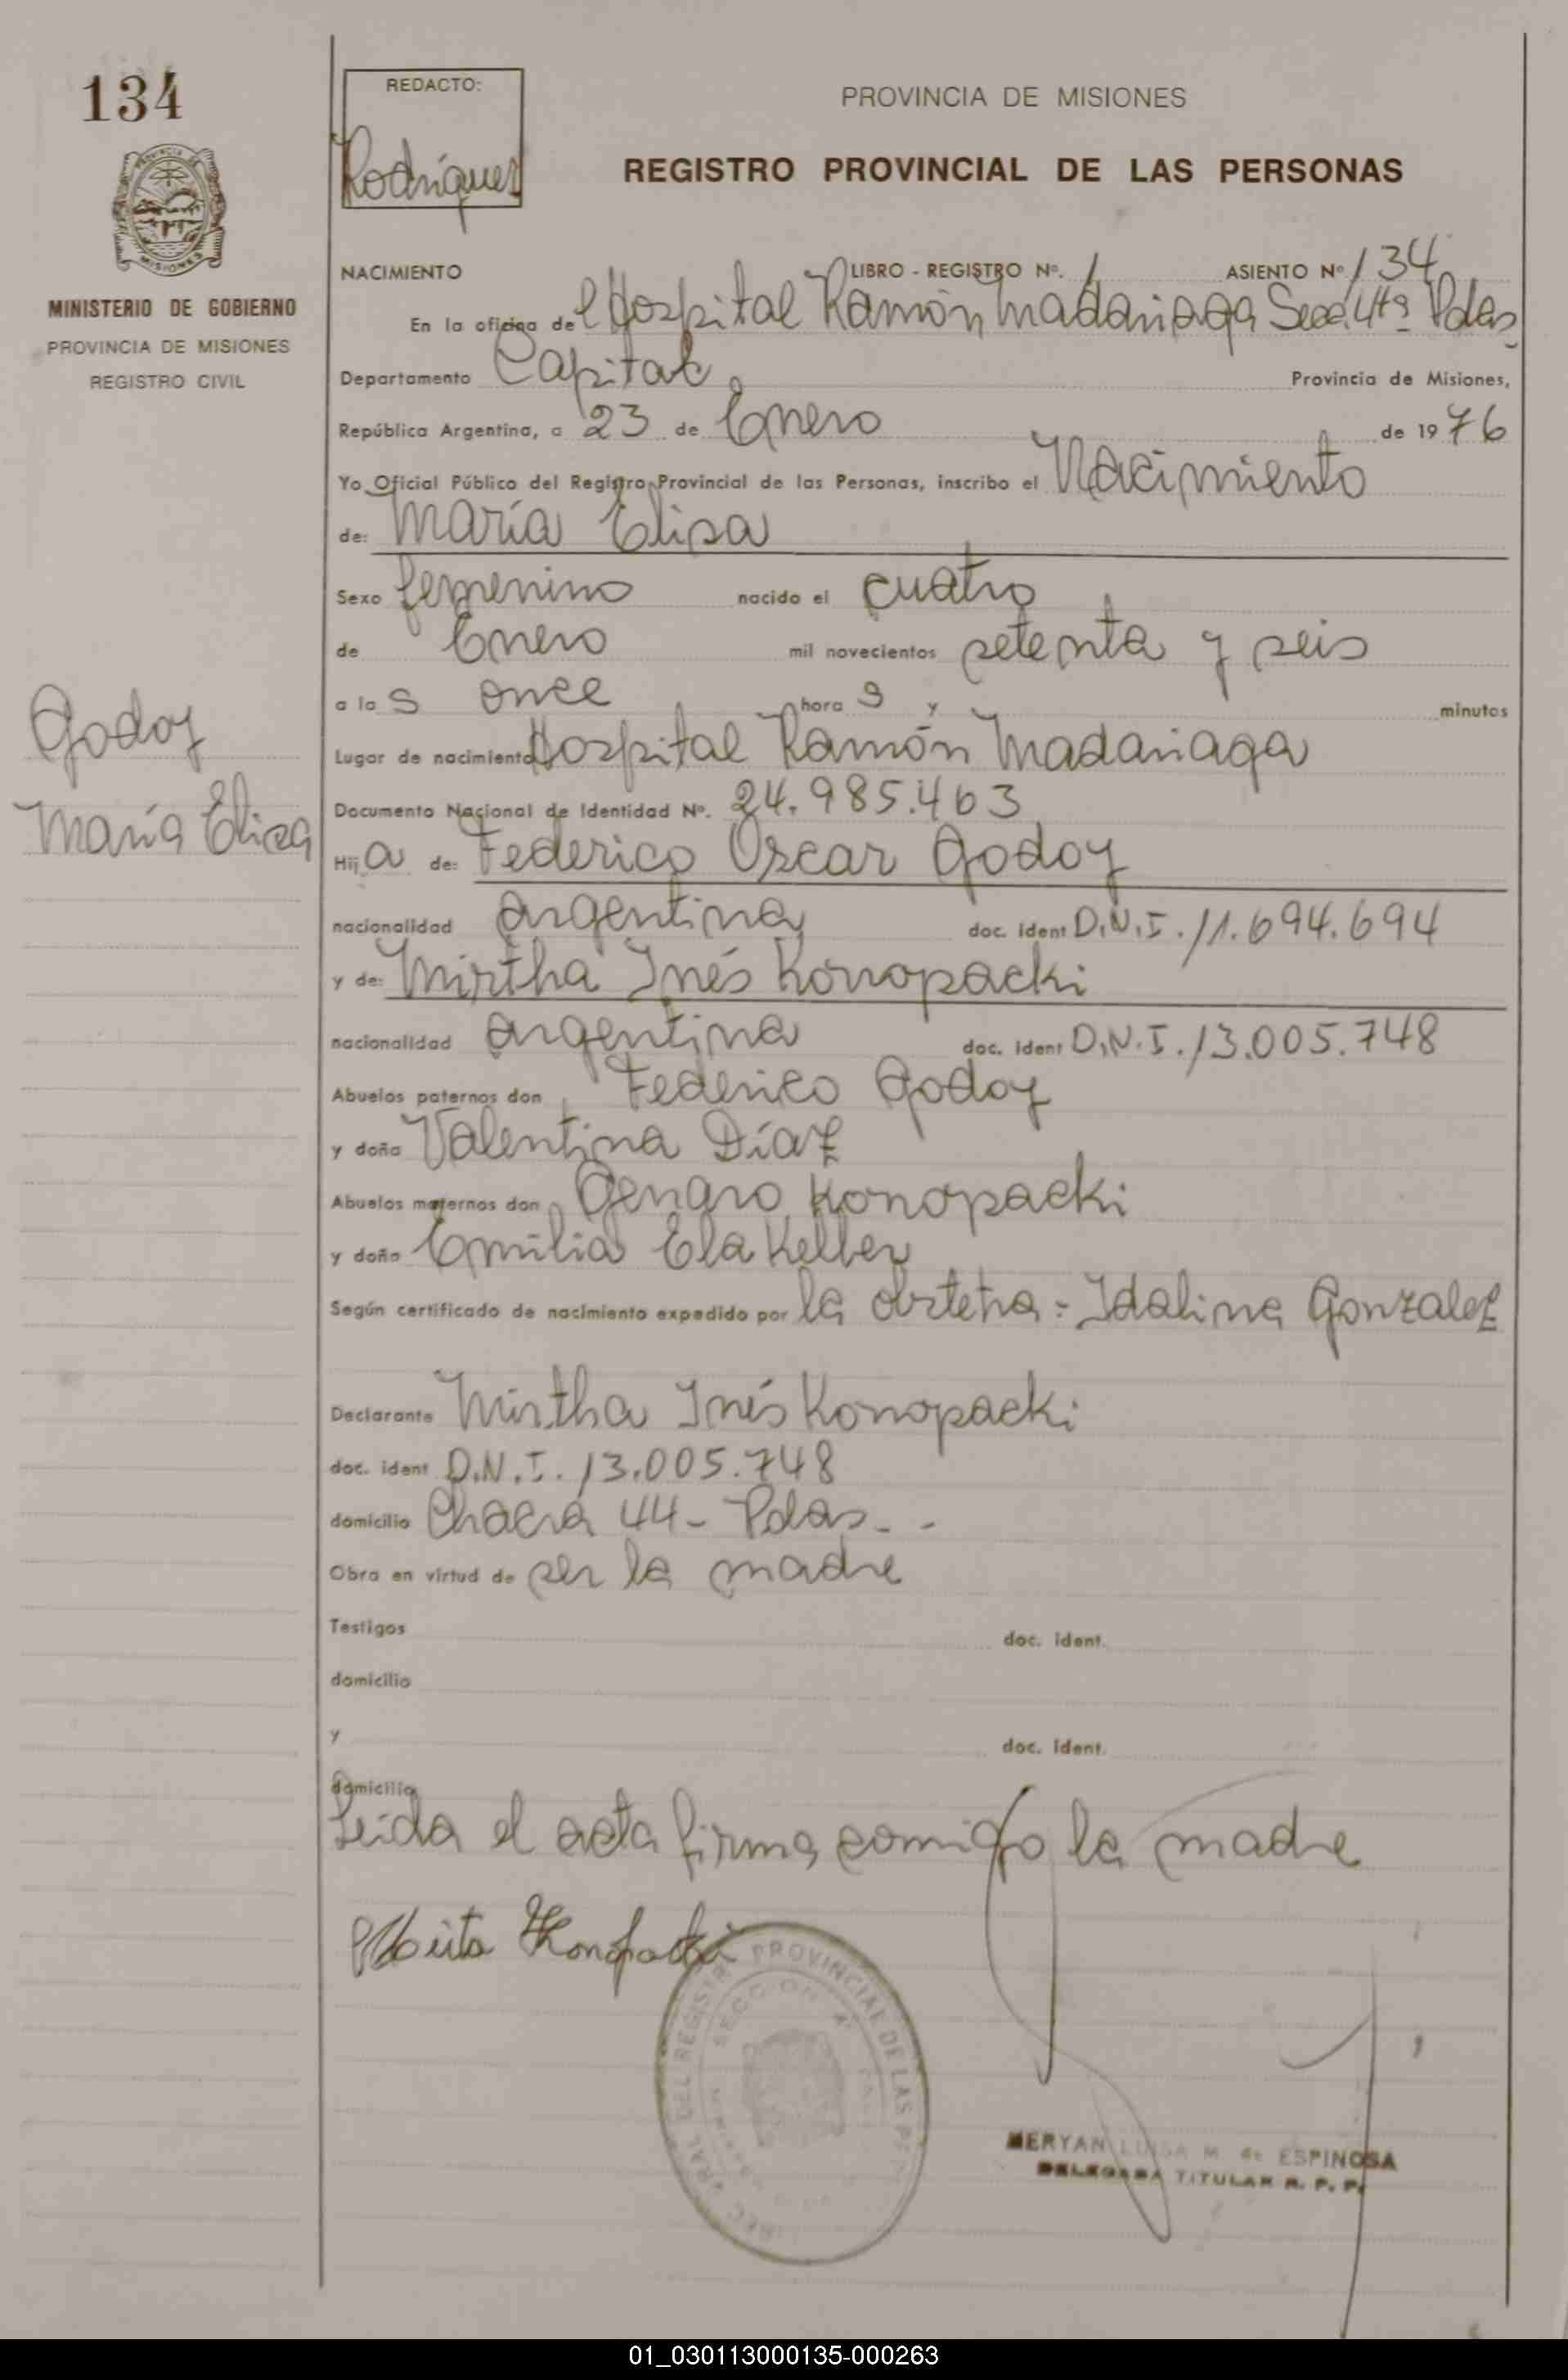 134
REDACTO:
Rodríguez
PROVINCIA DE MISIONES
REGISTRO PROVINCIAL DE LAS PERSONAS
MINISTERIO DE GOBIERNO
PROVINCIA DE MISIONES
REGISTRO CIVIL
NACIMIENTO LIBRO - REGISTRO Nº. 1 ASIENTO Nº 134
En la oficina del Hospital Ramón Madariaga Secc. 4ta Pdas
Departamento Capital Provincia de Misiones,
República Argentina, a 23 de Enero de 1976
Yo Oficial Público del Registro Provincial de las Personas, inscribo el Nacimiento
de: María Elisa
Sexo femenino nacido el cuatro
de Enero mil novecientos setenta y seis
a las once horas y minutos
Lugar de nacimiento Hospital Ramón Madariaga
Documento Nacional de Identidad Nº. 24.985.463
Hija de: Federico Oscar Godoy
nacionalidad argentina doc. ident D.N.I. 11.694.694
y de: Mirtha Inés Konopacki
nacionalidad argentina doc. ident D.N.I. 13.005.748
Abuelos paternos don Federico Godoy
y doña Valentina Díaz
Abuelos maternos don Genaro Konopacki
y doña Emilia Ela Keller
Según certificado de nacimiento expedido por la obstetra: Idalina Gonzalez
Declarante Mirtha Inés Konopacki
doc. ident D.N.I. 13.005.748
domicilio Chacra 44 - Pdas. -
Obra en virtud de ser la madre
Testigos doc. ident.
domicilio
y doc. ident.
domicilio
Leida el acta firma comigo la madre
Konopacki
Godoy
María Elisa
DEL REGISTRO PROVINCIAL DE LAS
SECCION 4ª
MERYAN LUISA M. de ESPINOSA
DELEGADA TITULAR R. P. P.
01_030113000135-000263